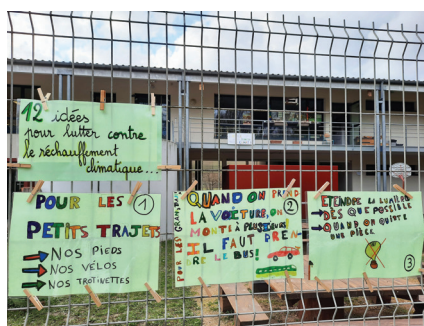 12 idées
pour lutter contre
le réchauffement
climatique...
POUR LES
PETITS TRAJETS
NOS PIEDS
NOS VÉLOS
NOS TROTINETTES
1
POUR LES GRANDS
QUAND ON PREND
LA VOITURE, ON
MONT À PLUSIEURS
IL FAUT PREN-
RE LE BUS!
2
ÉTEINDRE LA LUMIÈRE
DÈS QUE POSSIBLE
QUAND ON QUITTE
UNE PIÈCE
3